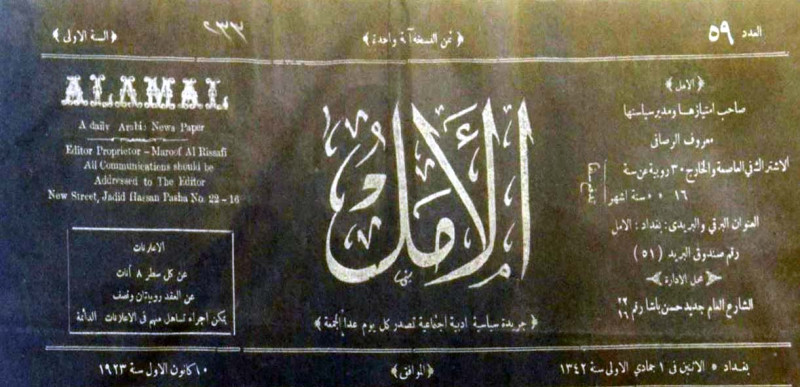 العدد ٥٩
﴿ ثمن النسخة آنة واحدة ﴾
﴿ السنة الاولى ﴾
٢٣٣
﴿ الامل ﴾
صاحب امتيازها ومدير سياستها
معروف الرصافي
الاشتراك في العاصمة والخارج ٣٠ روبية عن سنة
١٦ » » ستة اشهر
العنوان البرقي والبريدي: بغداد: الامل
رقم صندوق البريد (٥١)
محل الادارة
الشارع العام جديد حسن باشا رقم ٢٢/١٦
الأمل
﴿ جريدة سياسية ادبية اجتماعية تصدر كل يوم عدا الجمعة ﴾
ALAMAL
A daily Arabic News Paper
Editor Proprietor – Maroof Al Rissafi
All Communications should be
Addressed to The Editor
New Street, Jadid Hassan Pasha No. 22 – 16
الاعلانات
عن كل سطر ٨ آنات
عن العقد روبيتان ونصف
يمكن اجراء تساهل مهم في الاعلانات الدائمة
بغداد » الاثنين في ١ جمادي الاولى سنة ١٣٤٢
﴿ الموافق ﴾
١٠ كانون الاول سنة ١٩٢٣